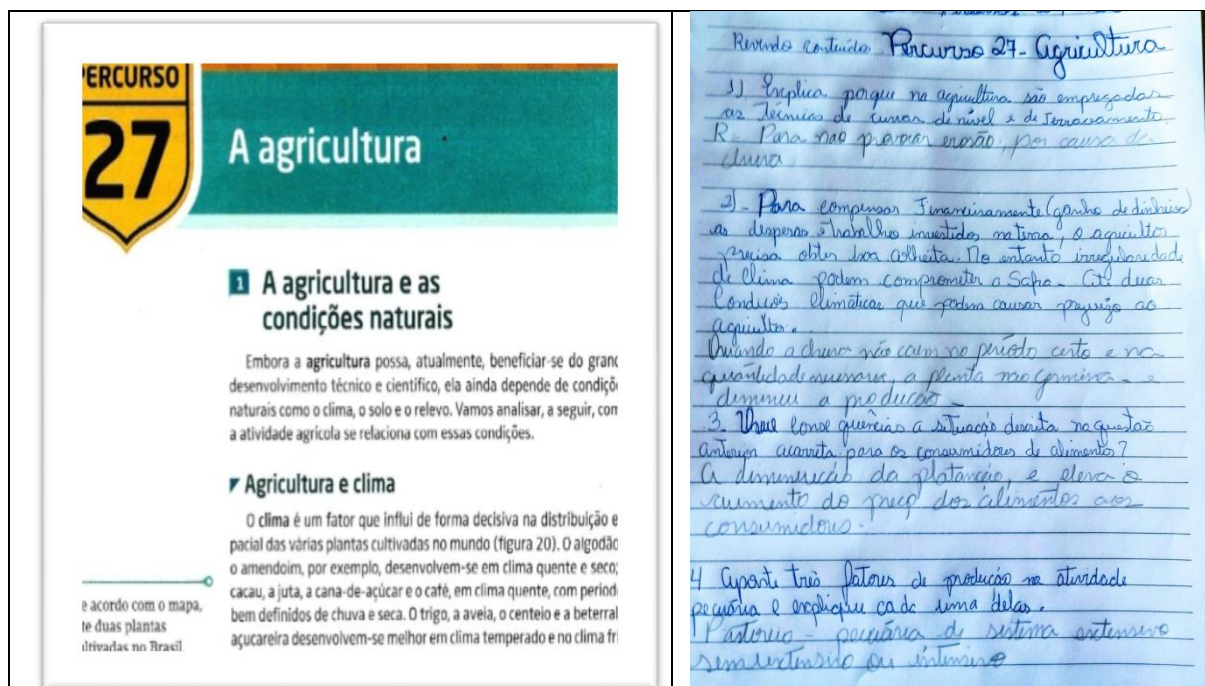 PERCURSO
27
A agricultura
1 A agricultura e as
condições naturais
Embora a agricultura possa, atualmente, beneficiar-se do grand
desenvolvimento técnico e científico, ela ainda depende de condiçõ
naturais como o clima, o solo e o relevo. Vamos analisar, a seguir, com
a atividade agrícola se relaciona com essas condições.
Agricultura e clima
O clima é um fator que influi de forma decisiva na distribuição e
pacial das várias plantas cultivadas no mundo (figura 20). O algodão
o amendoim, por exemplo, desenvolvem-se em clima quente e seco;
cacau, a juta, a cana-de-açúcar e o café, em clima quente, com period
bem definidos de chuva e seca. O trigo, a aveia, o centeio e a beterral
açucareira desenvolvem-se melhor em clima temperado e no clima fri
e acordo com o mapa,
te duas plantas
ultivadas no Brasil
Revendo conteúdo Percurso 27 - Agricultura
1) Explica porque na agricultura são empregadas
as Técnicas de curvas de nível e de Terraceamento
R= Para não provocar erosão, por causa da
chuva
2) - Para compensar Financeiramente (ganho de dinheiro)
as despesas e trabalho investidos na terra, o agricultor
precisa obter boa colheita. No entanto irregularidade
de clima podem comprometer a Safra - Cit. duas
Condições climáticas que podem causar prejuízo ao
agricultor.
Quando a chuva não caem no período certo e na
quantidade necessaria, a planta não germina e
diminui a produção
3. consequências a situação descrita na questão
anterior acarreta para os consumidores de alimento?
A diminuição da e eleva o
aumento do preço dos alimentos aos
consumidores.
4 Aponte três fatores de produção na atividade
pecuária e explique cada uma delas.
Pastoreio - pecuária de sistema extensivo
ou intensivo